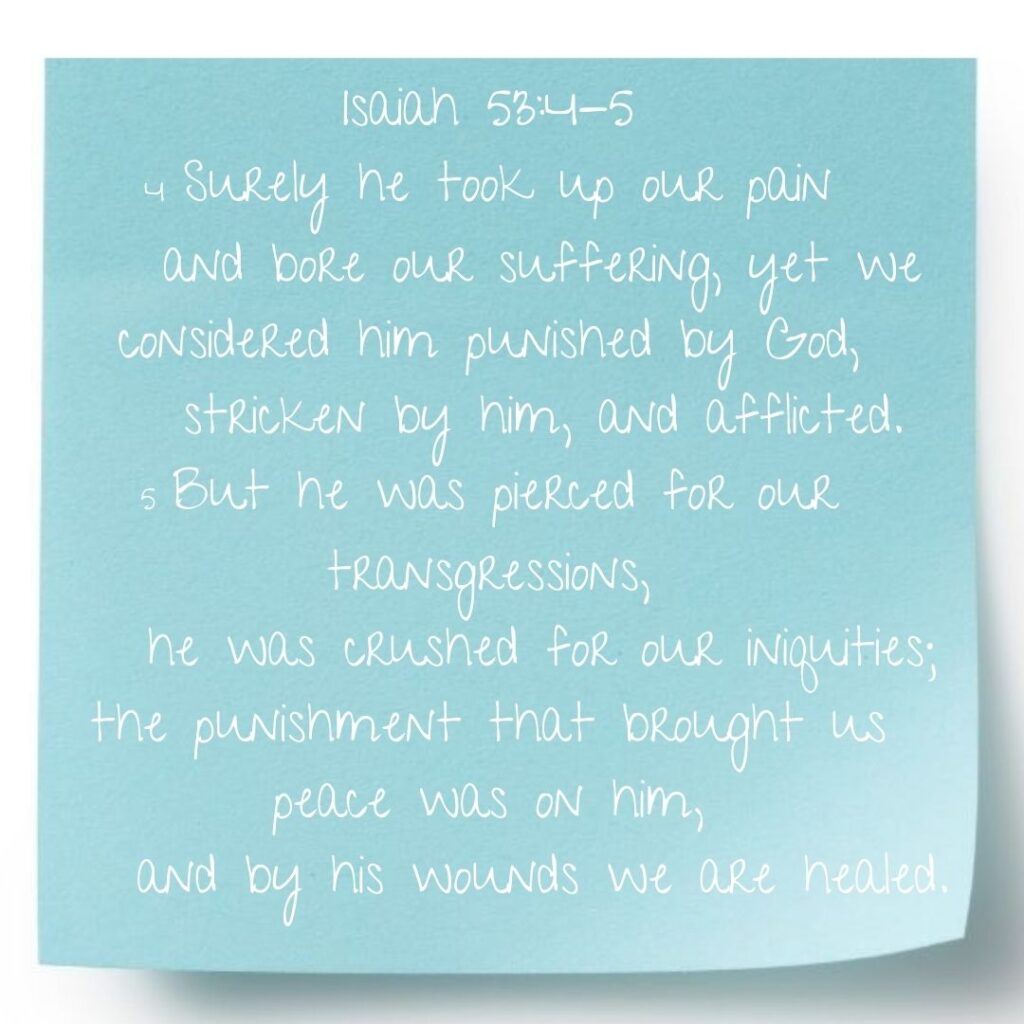 Isaiah 53:4-5
4 Surely he took up our pain
and bore our suffering, yet we
considered him punished by God,
stricken by him, and afflicted.
5 But he was pierced for our
transgressions,
he was crushed for our iniquities;
the punishment that brought us
peace was on him,
and by his wounds we are healed.